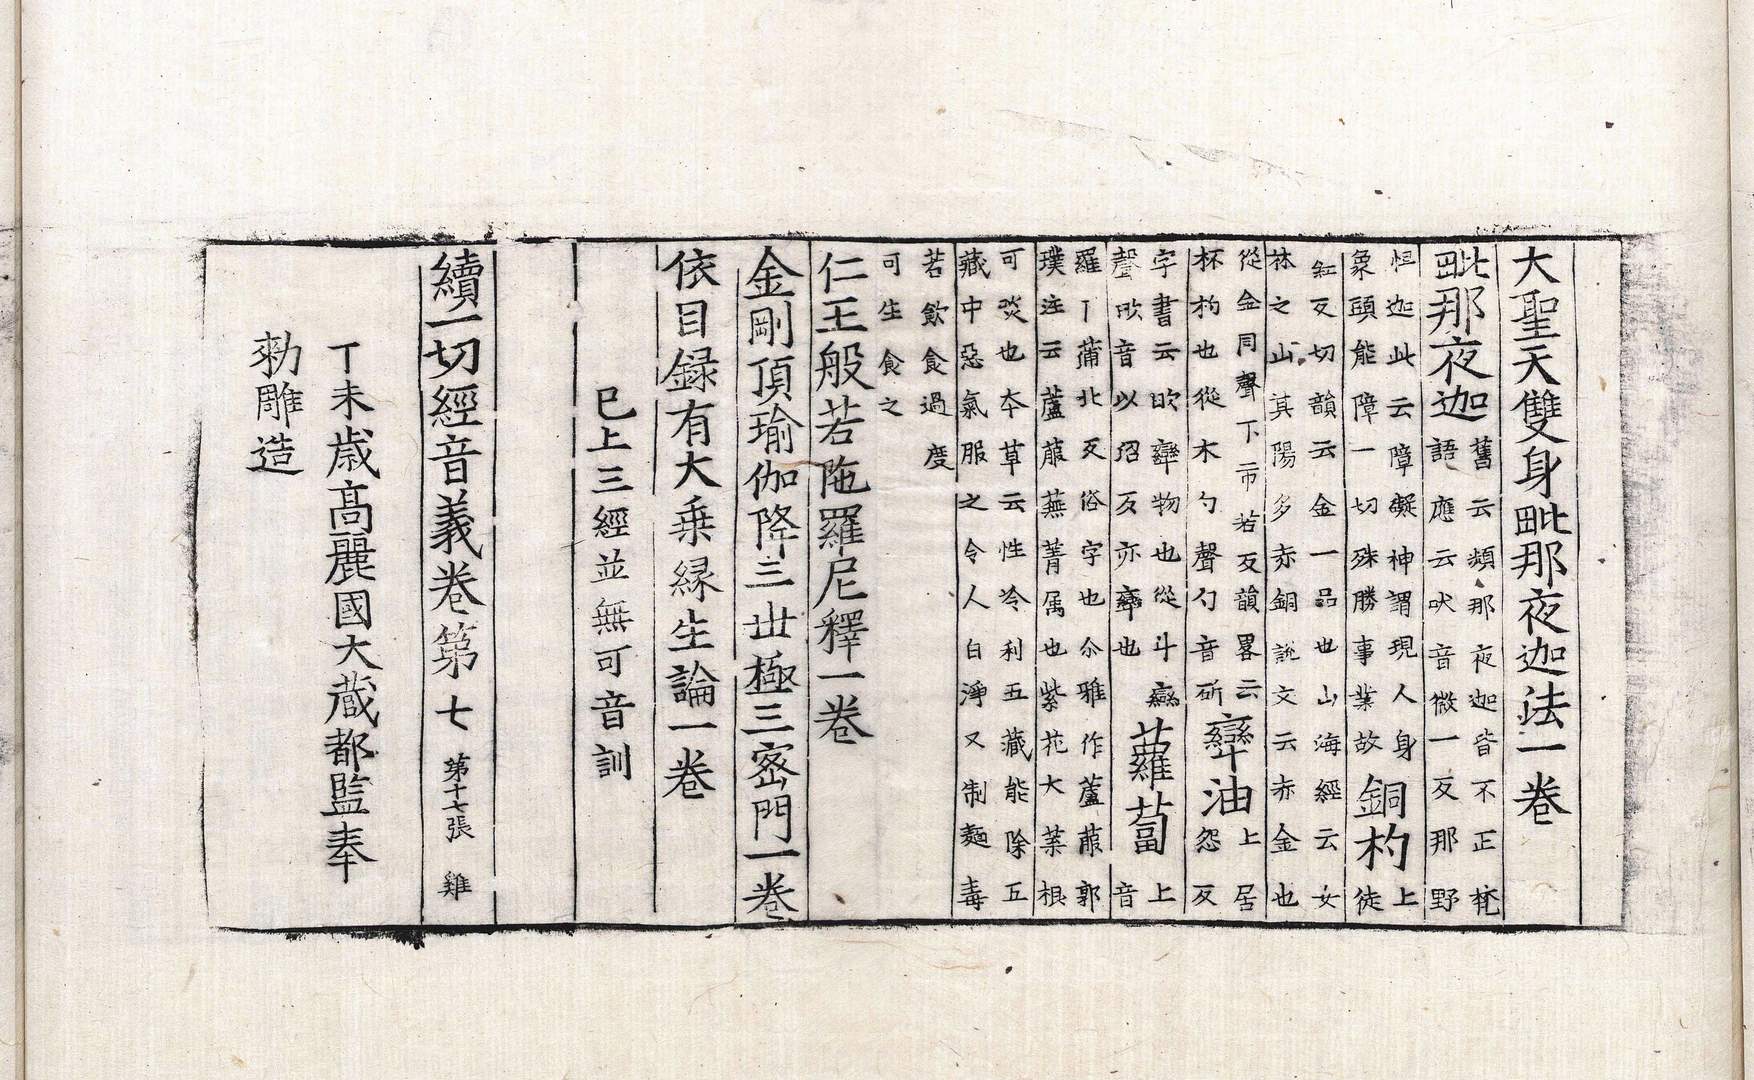 大聖天雙身毗那夜迦法一卷
毗那夜迦
舊云頻那夜迦皆不正梵
語應云吠音微一反那野
怛迦此云障礙神謂現人身
象頭能障一切殊勝事業故
銅杓
上
徒
紅反切韻云金一品也山海經云女
林之山其陽多赤銅說文云赤金也
從金同聲下市若反韻畧云
杯杓也從木勺聲勺音斫
攣油
上居
怨反
字書云㪻攣物也從斗䜌
聲㪻音以招反亦攣也
蘿蔔
上
音
羅丨蒲北反俗字也尒雅作蘆菔郭
璞注云蘆菔蕪菁属也紫花大葉根
可啖也本草云性冷利五藏能除五
藏中惡氣服之令人白淨又制麵毒
若飲食過度
可生食之
仁王般若陁羅尼釋一卷
金剛頂瑜伽降三世極三密門一卷
依目録有大乗縁生論一卷
已上三經並無可音訓
續一切經音義卷第七 第十七張 雞
丁未歳高麗國大藏都監奉
勅雕造